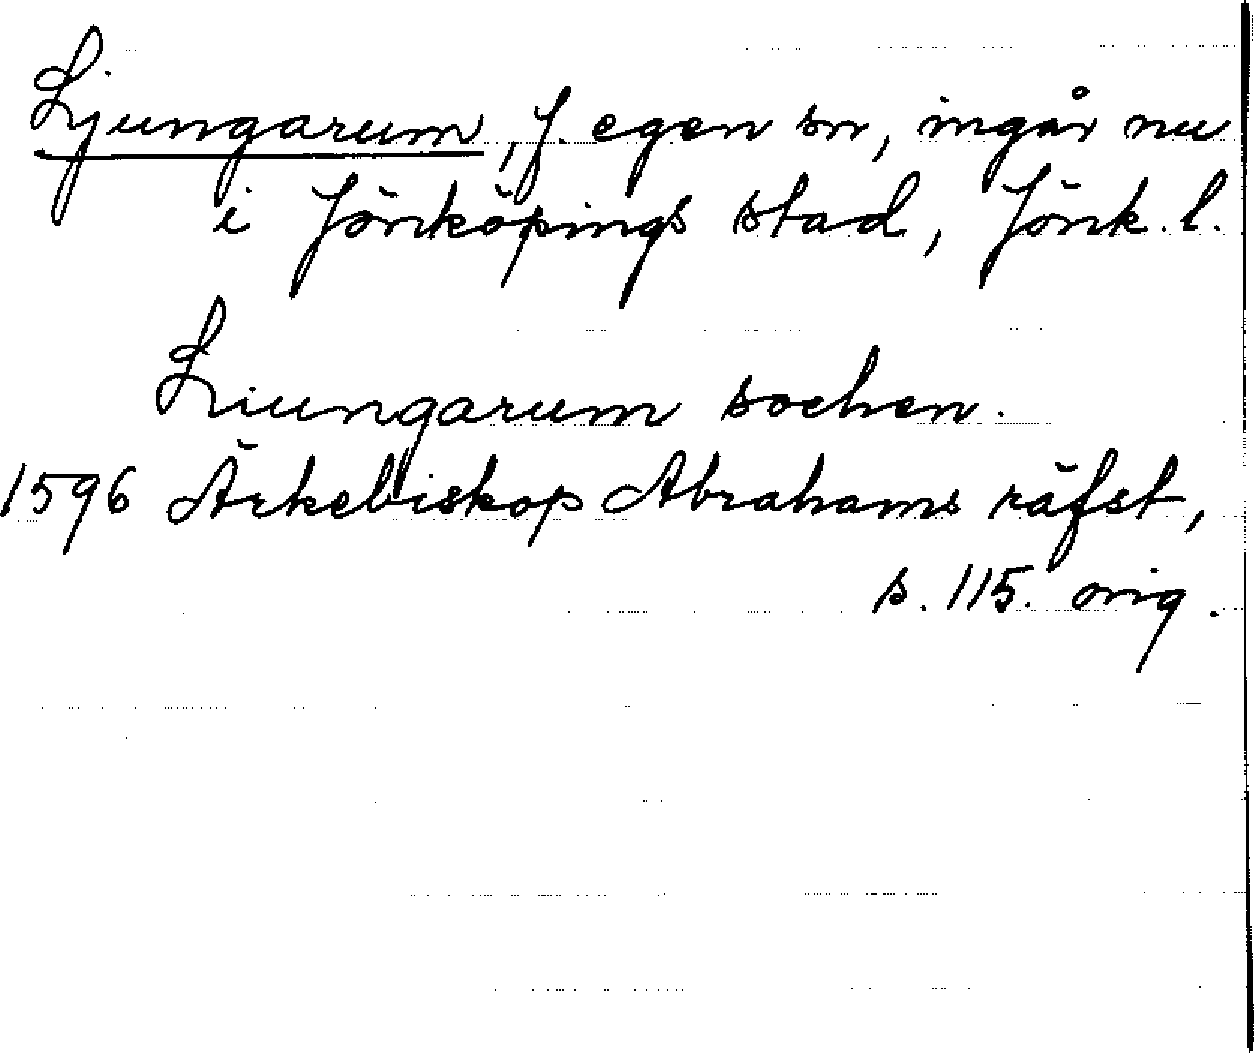 Ljungarum, f. egen sn, ingår nu
i Jönköpings stad, Jönk. l.
Liungarum sochen.
1596 Ärkebiskop Abrahams räfst,
s. 115. orig.